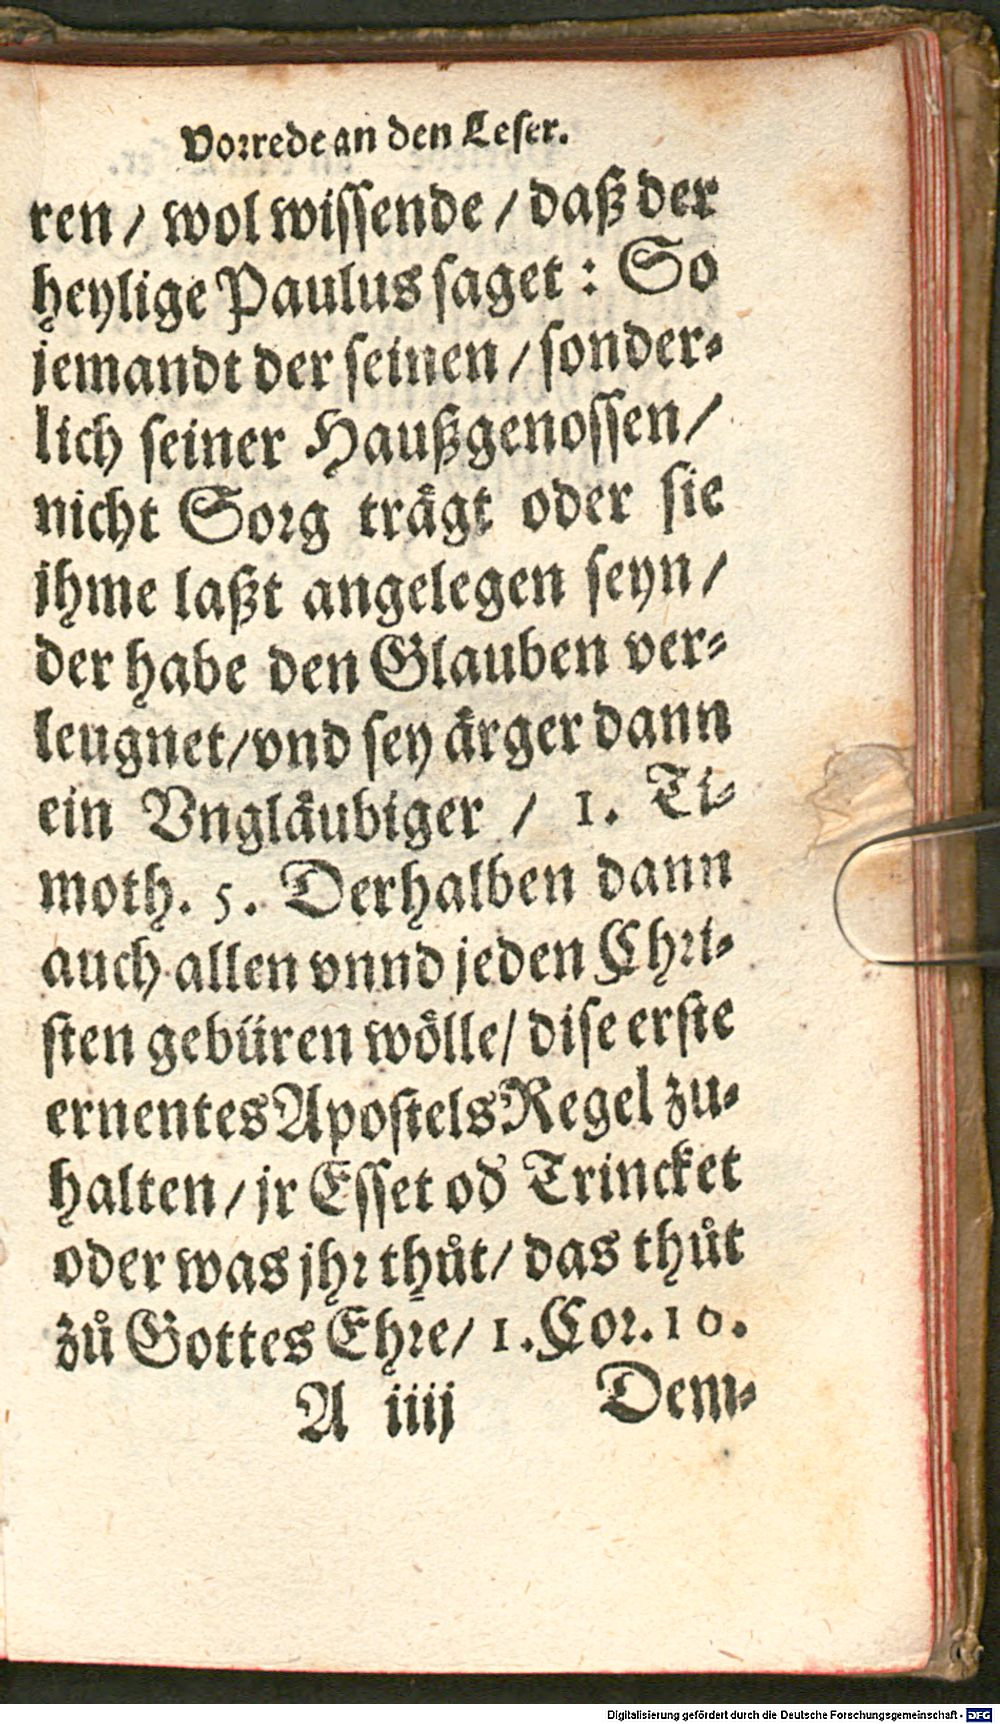 Vorrede an den Leser.
ren / wol wissende / daß der
heylige Paulus saget : So
jemandt der seinen / sonder-
lich seiner Haußgenossen /
nicht Sorg trägt oder sie
jhme laßt angelegen seyn /
der habe den Glauben ver-
leugnet / vnd sey ärger dann
ein Vngläubiger / 1. Ti-
moth. 5. Derhalben dann
auch allen vnnd jeden Chri-
sten gebüren wölle / dise erste
ernentes Apostels Regel zu-
halten / jr Esset od̄ Trincket
oder was jhr thůt / das thůt
zů Gottes Ehre / 1. Cor. 10.
A iiij Dem-
Digitalisierung gefördert durch die Deutsche Forschungsgemeinschaft - DFG